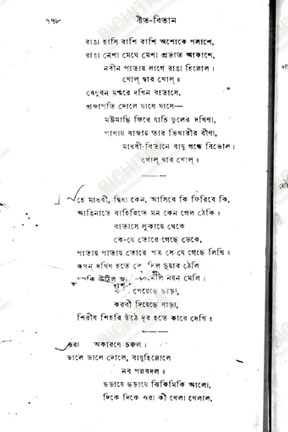 ৭৭৮ গীত-বিতান
রাঙা হাসি রাশি রাশি অশোকে পলাশে,
রাঙা নেশা মেঘে মেশা প্রভাত আকাশে,
নবীন পাতায় লাগে রাঙা হিল্লোল।
খোল্ দ্বার খোল্॥
বেণুবন মর্মরে দখিন বাতাসে,
প্রজাপতি দোলে ঘাসে ঘাসে—
মউমাছি ফিরে যাচি ফুলের দখিনা,
পাখায় বাজায় তার ভিখারীর বীণা,
মাধবী-বিতানে বায়ু গন্ধে বিভোল।
খোল্ দ্বার খোল্॥
হে মাধবী, দ্বিধা কেন, আসিবে কি ফিরিবে কি,
আঙিনাতে বাহিরিতে মন কেন গেল ঠেকি।
বাতাসে লুকায়ে থেকে
কে-যে তোরে গেছে ডেকে,
পাতায় পাতায় তোরে পত্র সে-যে গেছে লিখি॥
কখন্ দখিন হতে কে দুয়ার ঠেলি
চমকি উঠিল নয়ন মেলি।
পেয়েছে ছাড়া,
করবী দিয়েছে সাড়া,
শিরীষ শিহরি উঠে দূর হতে কারে দেখি॥
ওরা অকারণে চঞ্চল।
ডালে ডালে দোলে, বায়ুহিল্লোলে
নব পল্লবদল॥
ছড়ায়ে ছড়ায়ে ঝিকিমিকি আলো,
দিকে দিকে ওরা কী খেলা খেলাল,